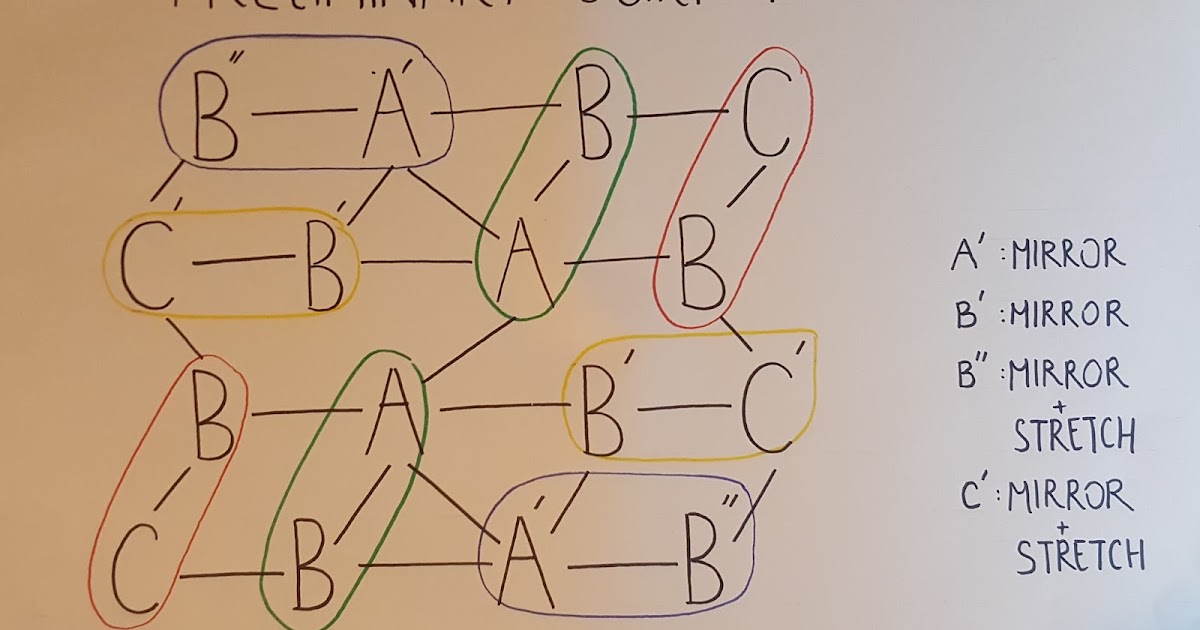 PRELIMINARY
B" A' B C
C' B' A B
B A B' C'
C B A' B"
A' : MIRROR
B' : MIRROR
B" : MIRROR
+
STRETCH
C' : MIRROR
+
STRETCH